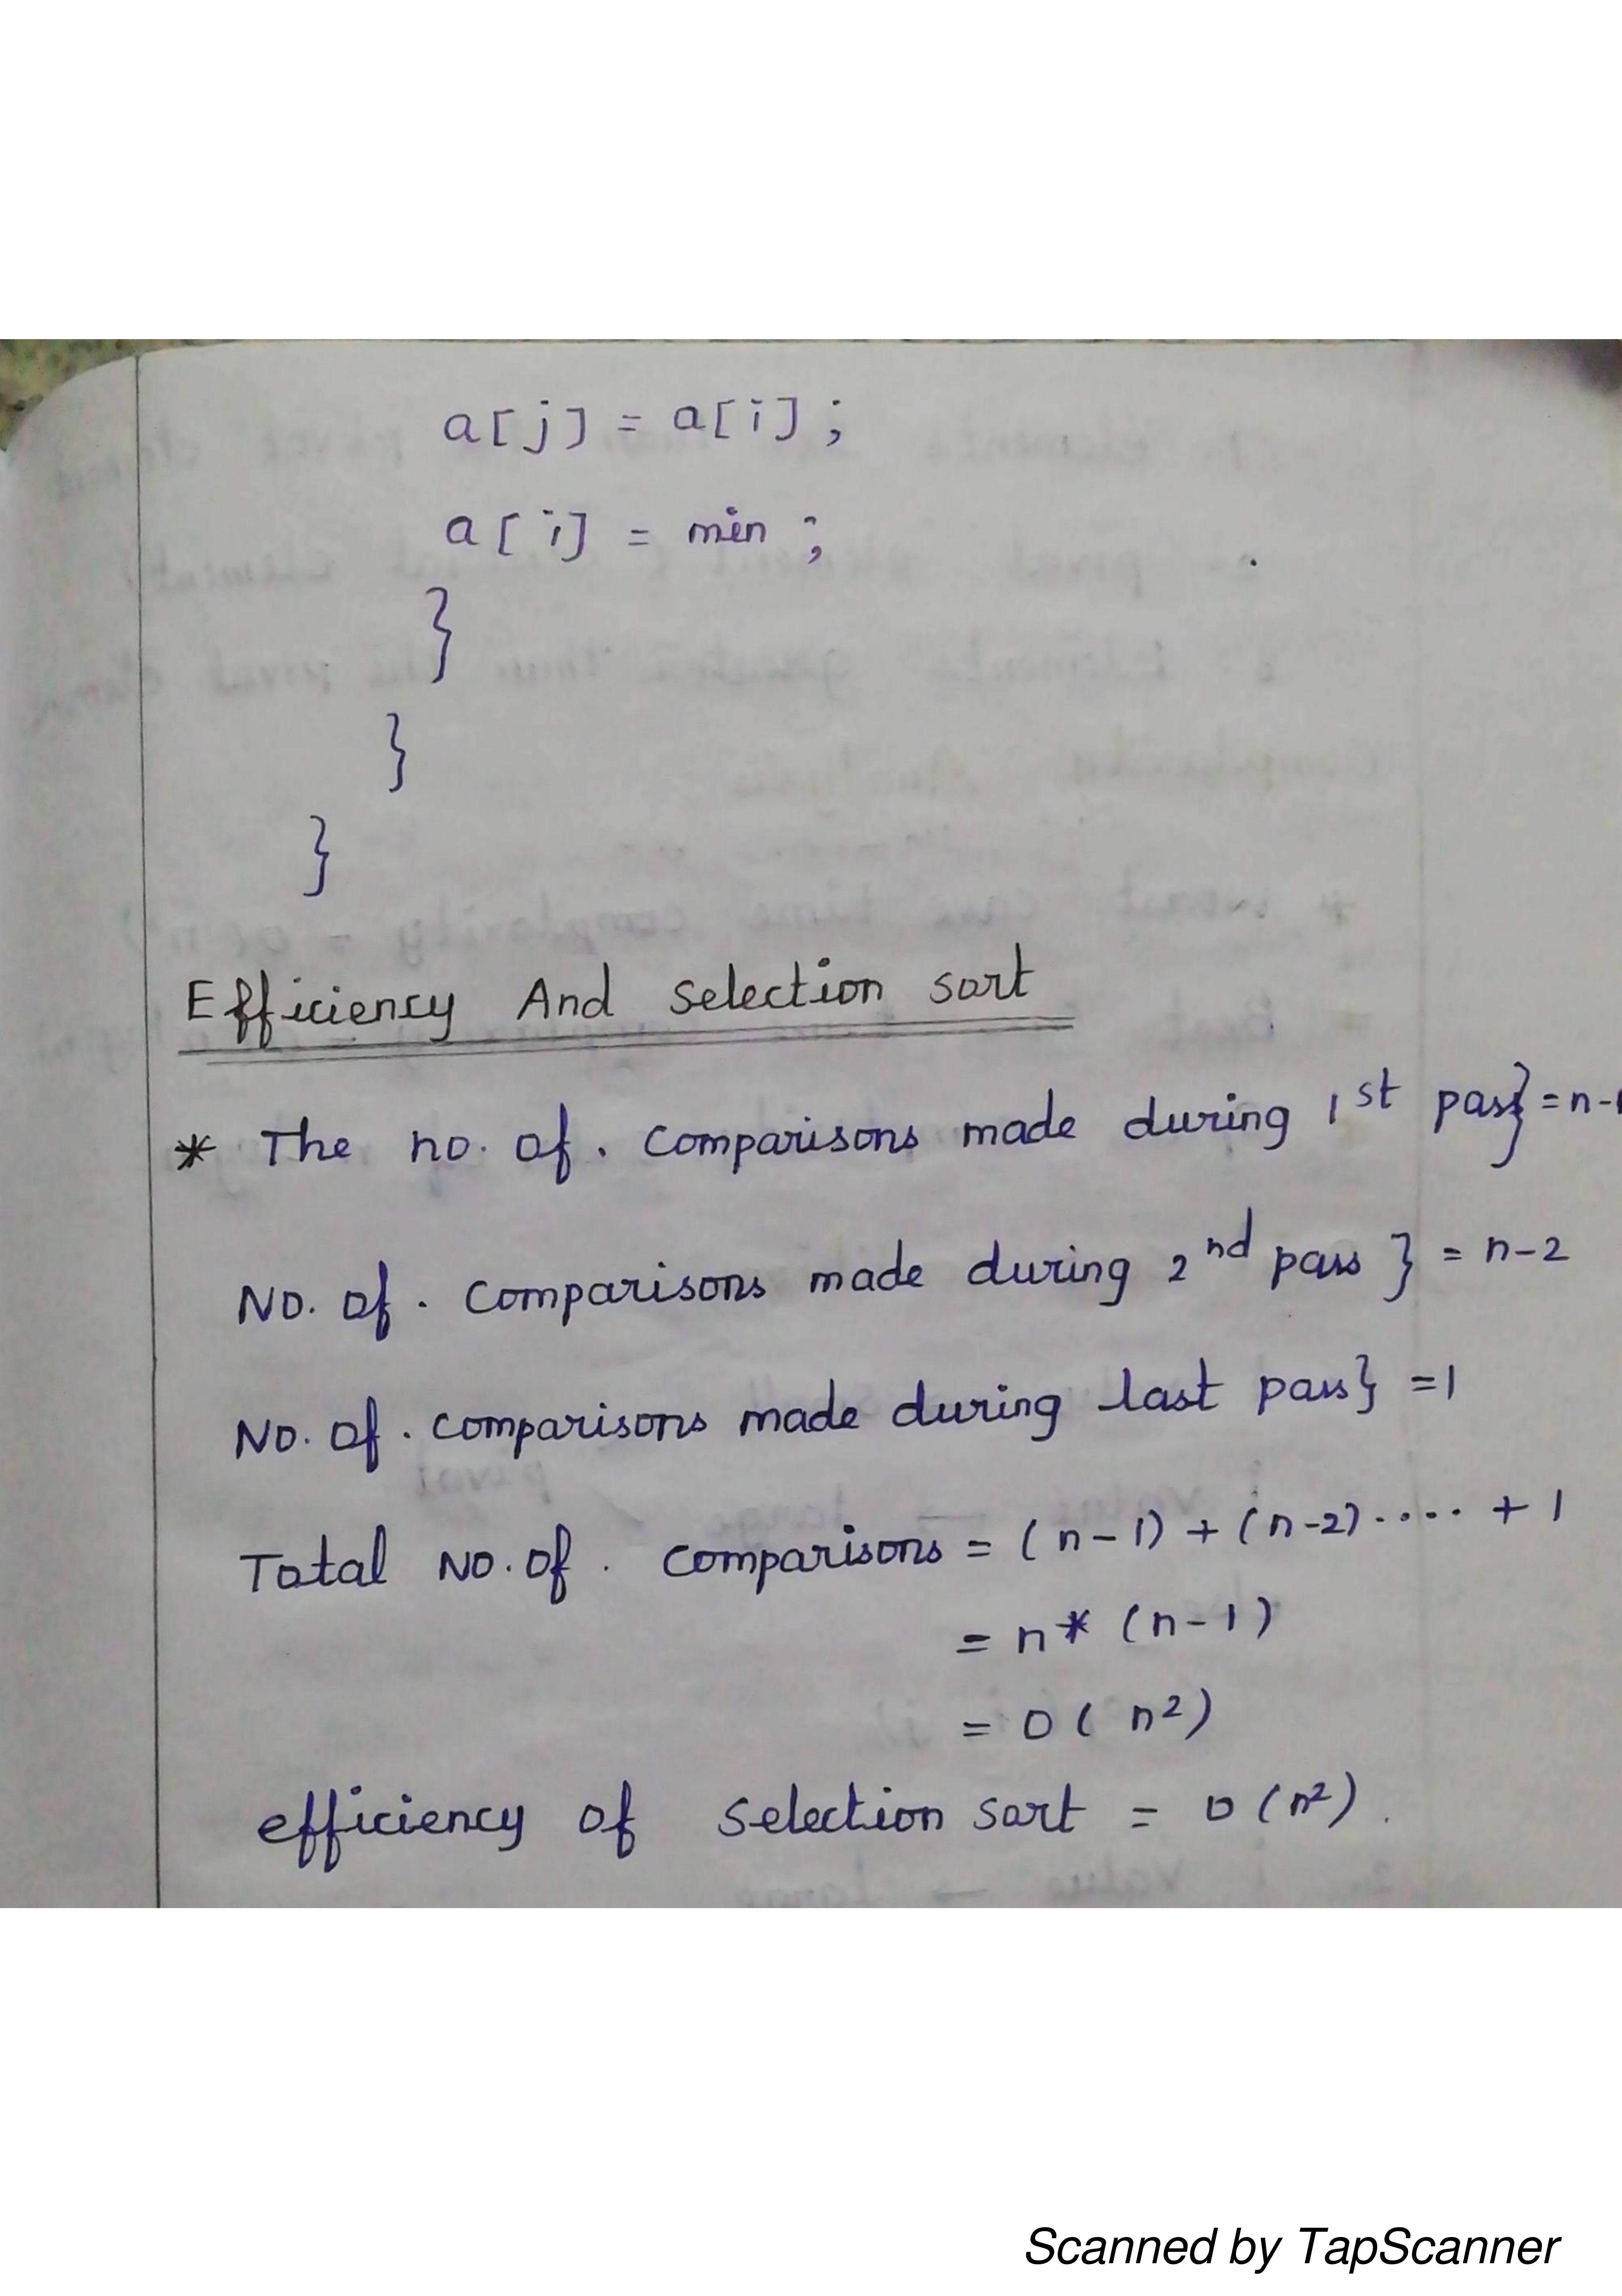 a[j] = a[i];
a[i] = min;
}
}
}
Efficiency And Selection sort
* The no. of. comparisons made during 1st pass} = n-1
No. of. comparisons made during 2nd pass } = n-2
No. of. comparisons made during last pass} =1
Total No. of. comparisons = (n-1) + (n-2) ..... + 1
= n* (n-1)
= O( n²)
efficiency of Selection sort = O(n²).
Scanned by TapScanner